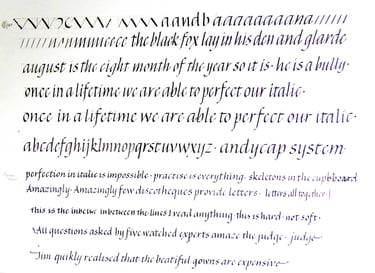 aandb aaaaaaaaana
the black fox lay in his den and glarde
august is the eight month of the year so it is · he is a bully ·
once in a lifetime we are able to perfect our italic ·
once in a lifetime we are able to perfect our italic ·
abcdefghijklmnopqrstuvwxyz · andycap system ·
perfection in italic is impossible · practise is everything · skeletons in the cupbboard
Amazingly · Amazingly few discotheques provide letters · letters all together ·
this is the inbetwe inbetween the lines I read anything this is hard · not soft ·
All questions asked by five watched experts amaze the judge · judge
Jim quikly realised that the beatiful gowns are expensive